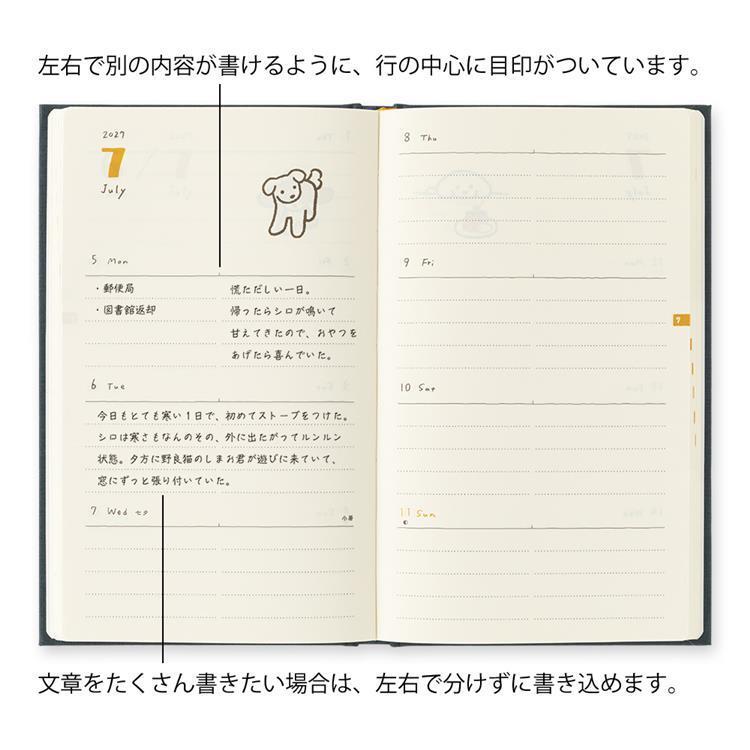 左右で別の内容が書けるように、行の中心に目印がついています。
2027
7
July
5 Mon
・郵便局
・図書館返却
慌ただしい一日。
帰ったらシロが鳴いて
甘えてきたので、おやつを
あげたら喜んでいた。
6 Tue
今日もとても寒い1日で、初めてストーブをつけた。
シロは寒さもなんのその、外に出たがってルンルン
状態。夕方に野良猫のしまお君が遊びに来ていて、
窓にずっと張り付いていた。
7 Wed 七夕
小暑
8 Thu
9 Fri
7
10 Sat
11 Sun
文章をたくさん書きたい場合は、左右で分けずに書き込めます。